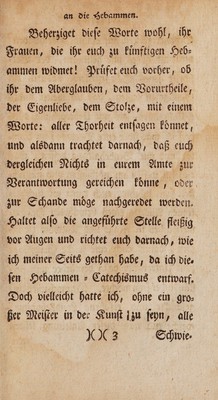 an die Hebammen.
Beherziget diese Worte wohl, ihr
Frauen, die ihr euch zu künftigen Heb-
ammen widmet! Prüfet euch vorher, ob
ihr dem Aberglauben, dem Vorurtheile,
der Eigenliebe, dem Stolze, mit einem
Worte: aller Thorheit entsagen könnet,
und alsdann trachtet darnach, daß euch
dergleichen Nichts in eurem Amte zur
Verantwortung gereichen könne, oder
zur Schande möge nachgeredet werden.
Haltet also die angeführte Stelle fleißig
vor Augen und richtet euch darnach, wie
ich meiner Seits gethan habe, da ich die-
sen Hebammen-Catechismus entwarf.
Doch vielleicht hatte ich, ohne ein gro-
ßer Meister in der Kunst zu seyn, alle
)( )( 3 Schwie-